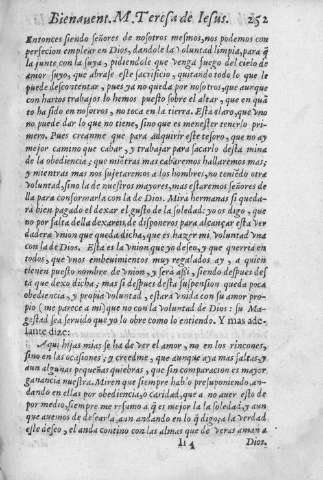 Bienauent. M. Teresa de Iesus. 252
Entonces siendo señores de nosotros mesmos, nos podemos con
perfecion emplear en Dios, dandole la voluntad limpia, para q̃
la junte con la suya, pidiendole que venga fuego del cielo de
amor suyo, que abrase este sacrificio, quitando todo lo que le
puede descontentar, pues ya no queda por nosotros, que aunque
con hartos trabajos lo hemos puesto sobre el altar, que en quã
to ha sido en nosotros, no toca en la tierra. Esta claro, que vno
no puede dar lo que no tiene, sino que es menester tenerlo pri-
mero. Pues creanme que para adquirir este tesoro, que no ay
mejor camino que cabar, y trabajar para sacarlo desta mina
de la obediencia; que mientras mas cabaremos hallaremos mas;
y mientras mas nos sujetaremos a los hombres, no teniẽdo otra
voluntad, sino la de nuestros mayores, mas estaremos señores de
lla para conformarla con la de Dios. Mira hermanas si queda-
rà bien pagado el dexar el gusto de la soledad: yo os digo, que
no por falta della dexareis de disponeros para alcançar esta ver
dadera vnion que queda dicha, que es hazer mi voluntad vna
con la de Dios. Esta es la vnion que yo deseo, y que querria en
todos, que vnos embeuimientos muy regalados ay, a quien
tienen puesto nombre de vnion, y serà assi, siendo despues des
ta que dexo dicha; mas si despues desta suspension queda poca
obediencia, y propia voluntad, estarà vnida con su amor propio
(me parece a mi) que no con la voluntad de Dios: su Ma-
gestad sea seruido que yo lo obre como lo entiendo. Y mas ade-
lante dize:
Aqui hijas mias se ha de ver el amor, no en los rincones,
sino en las ocasiones; y creedme, que aunque aya mas faltas, y
aun algunas pequeñas quiebras, que sin comparacion es mayor
ganancia nuestra. Miren que siempre hablo presuponiendo an-
dando en ellas por obediencia, o caridad, que a no auer esto de
por medio, siempre me resumo a q̃ es mejor la soledad, y aun
que auemos de desearla, aun andando en lo q̃ digo; a la verdad
este deseo, el anda contino con las almas que de veras aman a
Ii 4 Dios.